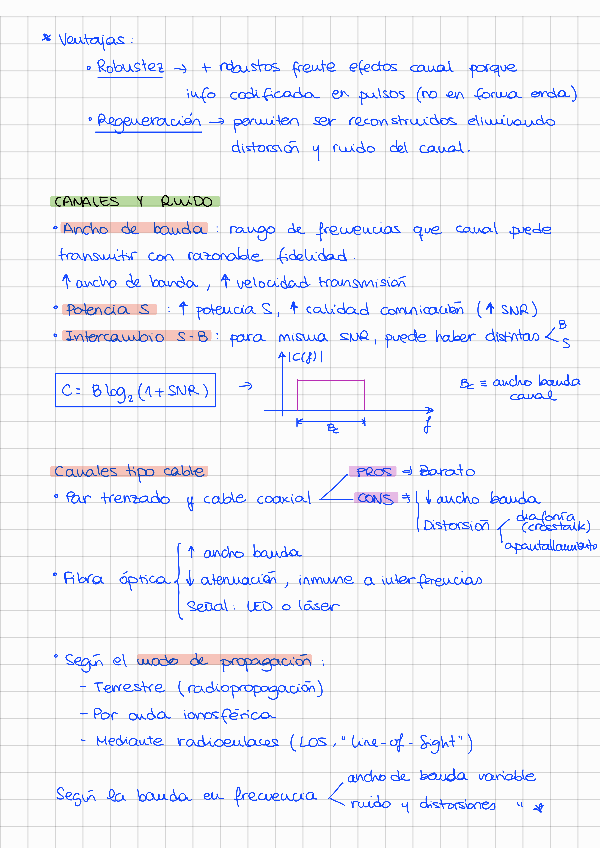 * Ventajas:
• Robustez → + robustos frente efectos canal porque
info codificada en pulsos (no en forma onda)
• Regeneración → permiten ser reconstruidos eliminando
distorsión y ruido del canal.
CANALES Y RUIDO
• Ancho de banda: rango de frecuencias que canal puede
transmitir con razonable fidelidad.
↑ ancho de banda, ↑ velocidad transmisión
• Potencia S : ↑ potencia S, ↑ calidad comunicación (↑ SNR)
• Intercambio S-B: para misma SNR, puede haber distintas B
S
|C(f)|
C = B log₂ (1 + SNR) →
Bc ≡ ancho banda
canal
Bc
f
Canales tipo cable
PROS ⇒ Barato
• Par trenzado y cable coaxial
CONS ⇒ ↓ ancho banda
Distorsión
diafonía
(crosstalk)
apantallamiento
↑ ancho banda
• Fibra óptica ↓ atenuación, inmune a interferencias
señal: LED o láser
• Según el modo de propagación:
- Terrestre (radiopropagación)
- Por onda ionosférica
- Mediante radioenlaces (LOS, "line-of-sight")
ancho de banda variable
Según la banda en frecuencia
ruido y distorsiones " *